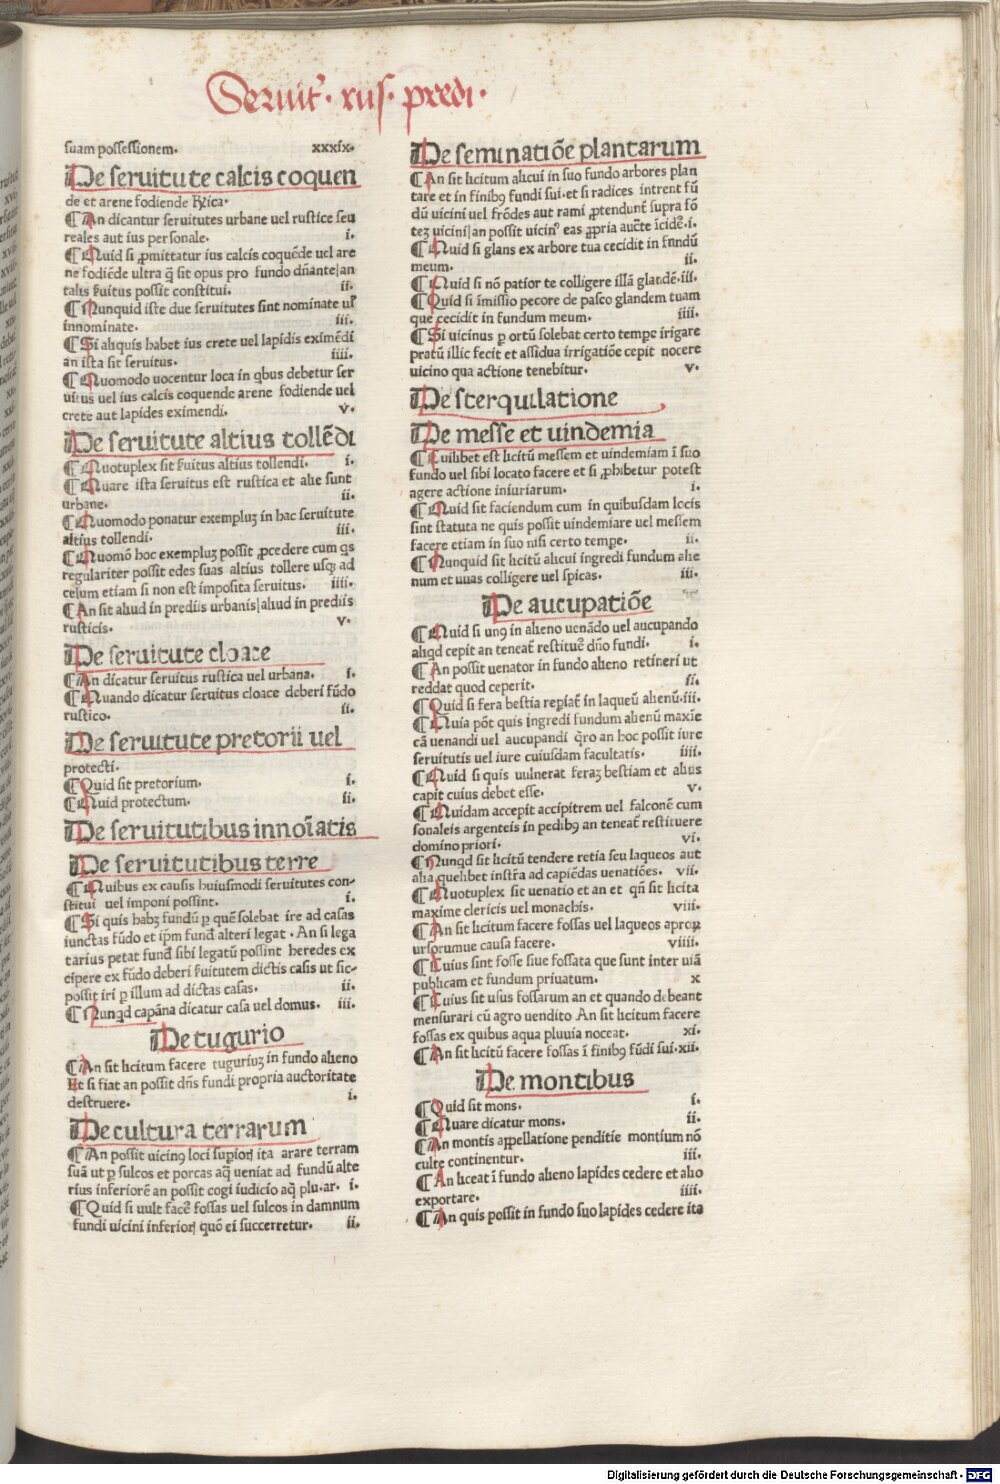 Seruit̉. rus. predi.
suam possessionem. xxxix.
De seruitute calcis coquen
de et arene fodiende Rica.
¶ An dicantur seruitutes urbane uel rustice seu
reales aut ius personale. i.
¶ Quid si ꝓmittatur ius calcis coquēde uel are
ne fodiēde ultra q̄ sit opus pro fundo dn̄ante|an
talis ẜuitus possit constitui. ii.
¶ Nunquid iste due seruitutes sint nominate uł
innominate. iii.
¶ Si aliquis habet ius crete uel lapidis eximēdi
an ista sit seruitus. iiii.
¶ Quomodo uocentur loca in qbus debetur ser
uitus uel ius calcis coquende arene fodiende uel
crete aut lapides eximendi. v.
De seruitute altius tollēdi
¶ Quotuplex sit ẜuitus altius tollendi. i.
¶ Quare ista seruitus est rustica et alie sunt
urbane. ii.
¶ Quomodo ponatur exempluꝫ in hac seruitute
altius tollendi. iii.
¶ Quomō hoc exempluꝫ possit ꝓcedere cum qs
regulariter possit edes suas altius tollere usqꝫ ad
celum etiam si non est imposita seruitus. iiii.
¶ An sit aliud in prediis urbanis|aliud in prediis
rusticis. v.
De seruitute cloace
¶ An dicatur seruitus rustica uel urbana. i.
¶ Quando dicatur seruitus cloace deberi fūdo
rustico. ii.
De seruitute pretorii uel
protecti.
¶ Quid sit pretorium. i.
¶ Quid protectum. ii.
De seruitutibus innoīatis
De seruitutibus terre
¶ Quibus ex causis huiusmodi seruitutes con-
stitui uel imponi possint. i.
¶ Si quis habꝫ fundū ꝑ quē solebat ire ad casas
iunctas fūdo et ip̄m fund̄ alteri legat. An si lega
tarius petat fund̄ sibi legatū possint heredes ex
cipere ex fūdo deberi ẜuitutem dictis casis ut sic-
possit iri ꝑ illum ad dictas casas. ii.
¶ Nunqd capāna dicatur casa uel domus. iii.
De tugurio
¶ An sit licitum facere tuguriuꝫ in fundo alieno
Et si fiat an possit dn̄s fundi propria auctoritate
destruere. i.
De cultura terrarum
¶ An possit uicinꝰ loci supioꝝ ita arare terram
suā ut ꝑ sulcos et porcas aq̄ ueniat ad fundū alte
rius inferiorē an possit cogi iudicio aq̄ plu.ar. i.
¶ Quid si uult facē fossas uel sulcos in damnum
fundi uicini inferioꝝ quō ei succerretur. ii.
De seminatiōe plantarum
¶ An sit licitum alicui in suo fundo arbores plan
tare et in finibꝰ fundi sui. et si radices intrent fū
dū uicini uel frōdes aut rami ꝓtendunt̄ supra fō
teꝫ uicini|an possit uicinꝰ eas ꝓpria auc̄te icidē. i.
¶ Quid si glans ex arbore tua cecidit in fundū
meum. ii.
¶ Quid si nō patior te colligere illā glandē. iii.
¶ Quid si imissio pecore de pasco glandem tuam
que cecidit in fundum meum. iiii.
¶ Si uicinus ꝑ ortū solebat certo tempe irigare
pratū illic fecit et assidua irrigatiōe cepit nocere
uicino qua actione tenebitur. v.
De sterquilatione
De messe et uindemia
¶ Cuilibet est licitū messem et uindemiam ī suo
fundo uel sibi locato facere et si ꝓhibetur potest
agere actione iniuriarum. i.
¶ Quid sit faciendum cum in quibusdam locis
sint statuta ne quis possit uindemiare uel messem
facere etiam in suo nisi certo tempe. ii.
¶ Nunquid sit licitū alicui ingredi fundum alie
num et uuas colligere uel spicas. iii.
De aucupatiōe
¶ Quid si unꝰ in alieno uenādo uel aucupando
aliqd cepit an teneat̄ restituē dn̄o fundi. i.
¶ An possit uenator in fundo alieno retineri ut
reddat quod ceperit. ii.
¶ Quid si fera bestia repiat̄ in laqueū alienū. iii.
¶ Quia pōt quis ingredi fundum alienū maxie
cā uenandi uel aucupandi q̄ro an hoc possit iure
seruitutis uel iure cuiusdam facultatis. iiii.
¶ Quid si quis uulnerat feraꝫ bestiam et alius
capit cuius debet esse. v.
¶ Quidam accepit accipitrem uel falconē cum
sonaleis argenteis in pedibꝰ an teneat̄ restituere
domino priori. vi.
¶ Nunqd sit licitū tendere retia seu laqueos aut
alia quelibet instr̄a ad capiēdas uenatiōes. vii.
¶ Quotuplex sit uenatio et an et qn̄ sit licita
maxime clericis uel monachis. viii.
¶ An sit licitum facere fossas uel laqueos aproꝝ
ursorumue causa facere. viiii.
¶ Cuius sint fosse siue fossata que sunt inter uiā
publicam et fundum priuatum. x
¶ Cuius sit usus fossarum an et quando debeant
mensurari cū agro uendito An sit licitum facere
fossas ex quibus aqua pluuia noceat. xi.
¶ An sit licitū facere fossas ī finibꝰ fūdi sui. xii.
De montibus
¶ Quid sit mons. i.
¶ Quare dicatur mons. ii.
¶ An montis appellatione penditie montium nō
culte continentur. iii.
¶ An liceat ī fundo alieno lapides cedere et alio
exportare. iiii.
¶ An quis possit in fundo suo lapides cedere ita
Digitalisierung gefördert durch die Deutsche Forschungsgemeinschaft - DFG